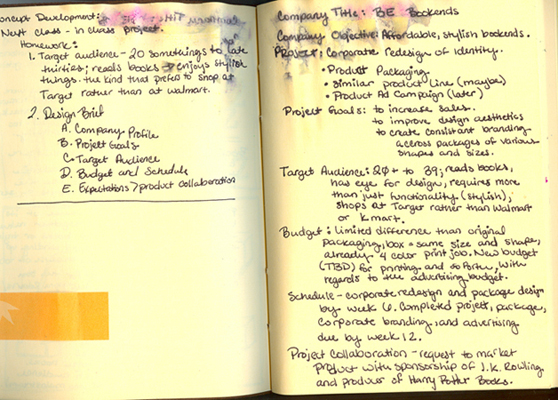 Concept Development:
Next class - in class project.
Homework:
1. Target audience - 20 somethings to late
thirties; reads books > enjoys stylish
things. the kind that prefers to shop at
Target rather than at walmart.
2. Design Brief
A. Company Profile
B. Project Goals
C. Target Audience
D. Budget and Schedule
E. Expectations > product collaboration
Company Title: BE Bookends
Company Objective: Affordable, stylish bookends.
Project: Corporate redesign of identity.
• Product Packaging.
• Similar product line (maybe)
• Product Ad Campaign (later)
Project Goals: to increase sales.
to improve design aesthetics
to create consistant branding
across packages of various
shapes and sizes.
Target Audience: 20 + to 39; reads books,
has eye for design, requires more
than just functionality (stylish),
shops at Target rather than Walmart
or Kmart.
Budget: Limited difference than original
packaging, box = same size and shape,
already 4 color print job. New budget
(TBD) for printing and so forth, with
regards to the advertising budget.
Schedule - corporate redesign and package design
by week 6. Completed project, package,
corporate branding, and advertising
due by week 12.
Project Collaboration - request to market
product with sponsorship of J.K. Rowling
and produs of Harry Potter Books.